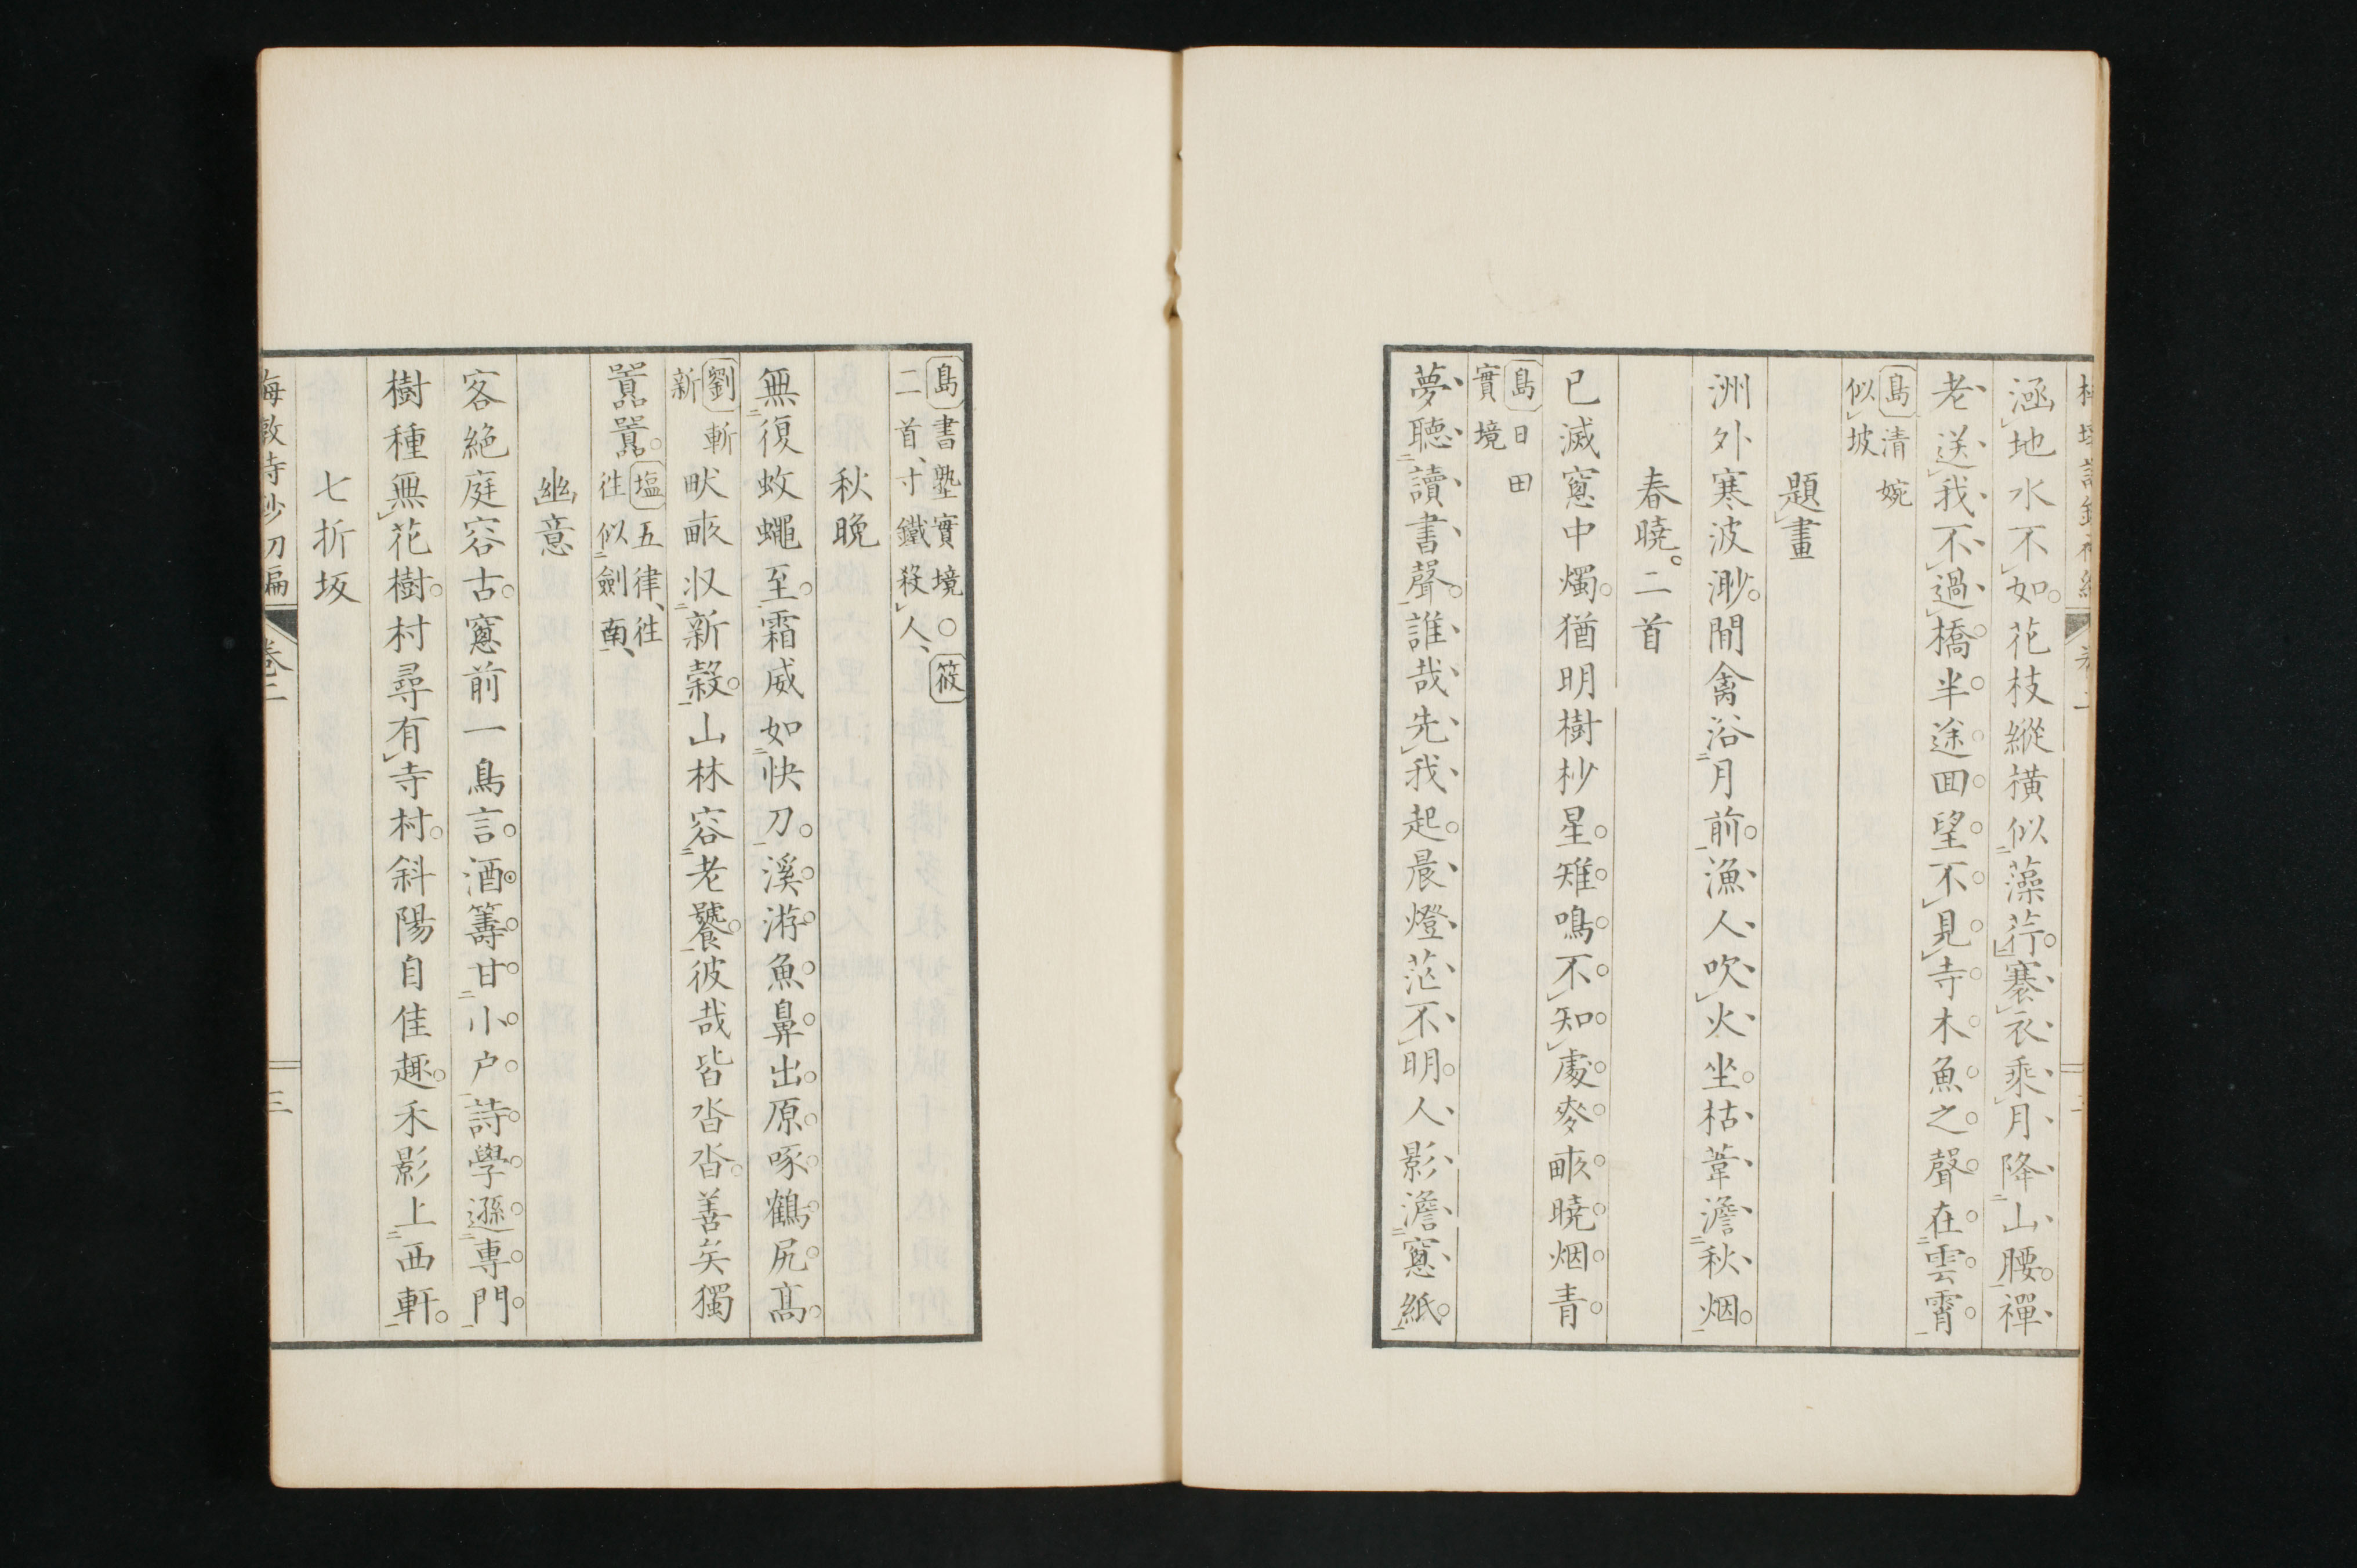 涵地水不如花枝縱橫似藻荇褰衣乘月降山腰禪
老送我不過橋半途囬望不見寺木魚之聲在雲霄
島清婉
似坡
題畫
洲外寒波渺閒禽浴月前漁人吹火坐枯葦澹秋烟
春曉二首
已滅窻中燭猶明樹杪星雉鳴不知處麥畞曉烟青
島日田
實境
夢聽讀書聲誰哉先我起晨燈茫不明人影澹窻紙
島書塾實境○筱
二首寸鐵殺人
秋晚
無復蚊蠅至霜威如快刀溪游魚鼻出原啄鶴尻髙
劉斬
新
畎畞收新穀山林容老饕彼哉皆沓沓善矣獨
囂囂
塩五律徃
徃似劍南
幽意
客絶庭容古窻前一鳥言酒籌甘小户詩學遜專門
樹種無花樹村尋有寺村斜陽自佳趣禾影上西軒
七折坂
卷二
三